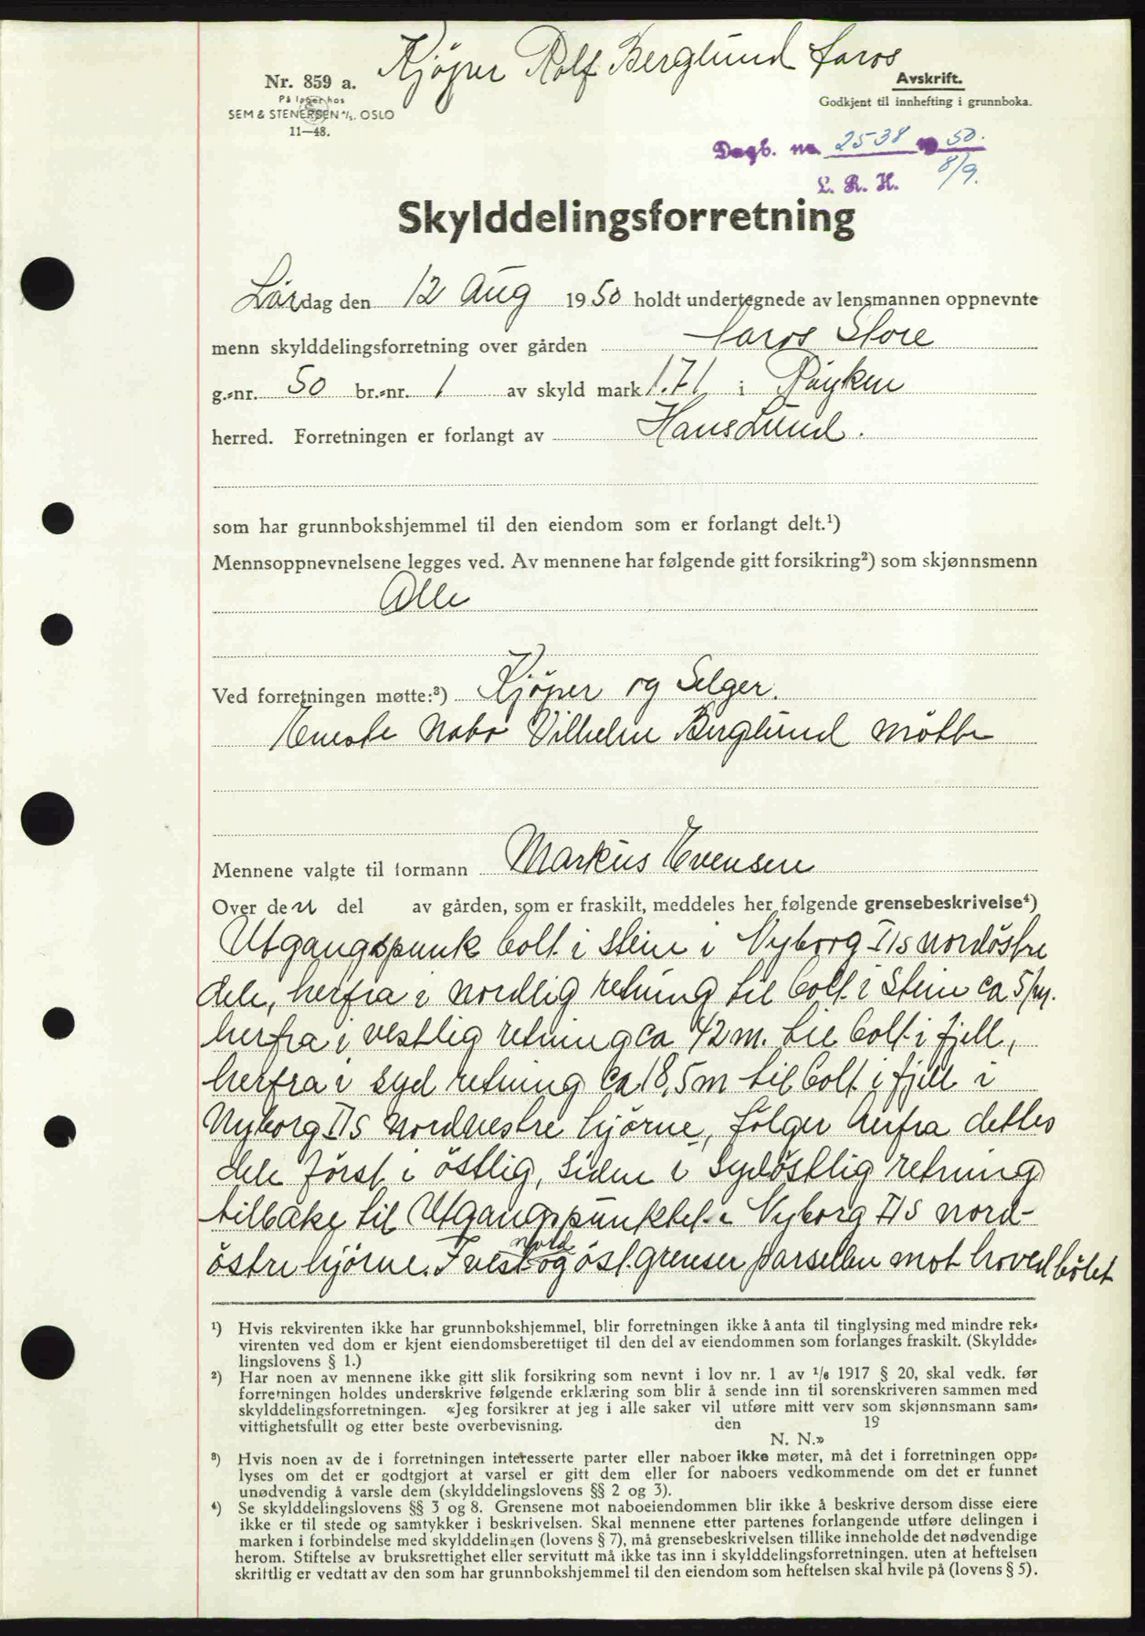 Kjöper Rolf Berglund Saros
Nr. 859 a.
Avskrift.
På lager hos
SEM & STENERSEN A/S. OSLO
11—48.
Godkjent til innhefting i grunnboka.
Dagb. nr. 2538 19 50.
L. R. H. 8/9.
Skylddelingsforretning
Lördag den 12 Aug 1950 holdt undertegnede av lensmannen oppnevnte
menn skylddelingsforretning over gården Saros Store
g.-nr. 50 br.-nr. 1 av skyld mark 1.71 i Röyken
herred. Forretningen er forlangt av Hans Lund.
som har grunnbokshjemmel til den eiendom som er forlangt delt.¹)
Mennsoppnevnelsene legges ved. Av mennene har følgende gitt forsikring²) som skjønnsmenn
Alle
Ved forretningen møtte:³) Kjöper og Selger.
Eneste Nabo Vilhelm Berglund mötte
Mennene valgte til formann Markus Evensen
Over den del av gården, som er fraskilt, meddeles her følgende grensebeskrivelse⁴)
Utgangspunk bolt i stein i Nyborg IIs nordöstre
dele, herfra i nordlig retning til bolt i Stein ca 5 m.
herfra i vestlig retning ca 42 m. til bolt i fjell,
herfra i syd retning ca 18,5 m til bolt i fjell i
Nyborg IIs nordvestre hjörne, fölger herfra dettes
dele först i östlig, siden i sydöstlig retning
tilbake til Utgangspunktet i Nyborg IIs nord-
östre hjörne. I vest nord og öst grenser parsellen mot hovedbölet
¹) Hvis rekvirenten ikke har grunnbokshjemmel, blir forretningen ikke å anta til tinglysing med mindre rek-
virenten ved dom er kjent eiendomsberettiget til den del av eiendommen som forlanges fraskilt. (Skyldde-
lingslovens § 1.)
²) Har noen av mennene ikke gitt slik forsikring som nevnt i lov nr. 1 av 1/6 1917 § 20, skal vedk. før
forretningen holdes underskrive følgende erklæring som blir å sende inn til sorenskriveren sammen med
skylddelingsforretningen. «Jeg forsikrer at jeg i alle saker vil utføre mitt verv som skjønnsmann sam-
vittighetsfullt og etter beste overbevisning. den 19
N. N.»
³) Hvis noen av de i forretningen interesserte parter eller naboer ikke møter, må det i forretningen opp-
lyses om det er godtgjort at varsel er gitt dem eller for naboers vedkommende om det er funnet
unødvendig å varsle dem (skylddelingslovens §§ 2 og 3).
⁴) Se skylddelingslovens §§ 3 og 8. Grensene mot naboeiendommen blir ikke å beskrive dersom disse eiere
ikke er til stede og samtykker i beskrivelsen. Skal mennene etter partenes forlangende utføre delingen i
marken i forbindelse med skylddelingen (lovens § 7), må grensebeskrivelsen tillike inneholde det nødvendige
herom. Stiftelse av bruksrettighet eller servitutt må ikke tas inn i skylddelingsforretningen, uten at heftelsen
skriftlig er vedtatt av den som har grunnbokshjemmel til den eiendom som heftelsen skal hvile på (lovens § 5).